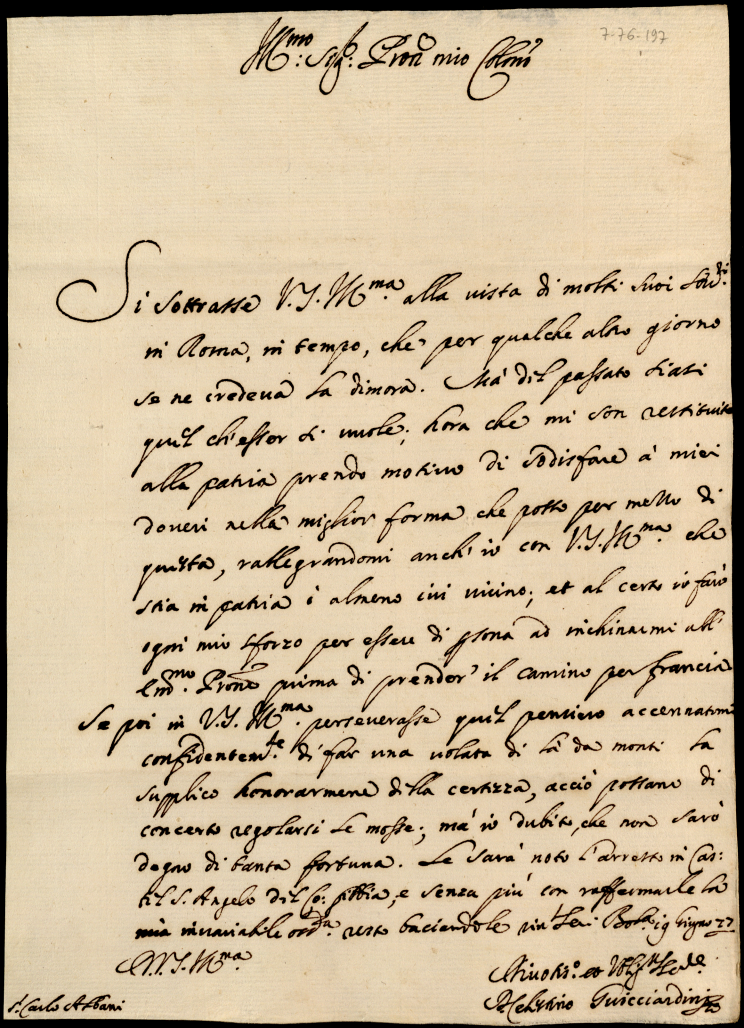 7-76-197
Ill.mo Sig.r Pron mio Col.mo
Si sottrasse V.S. Ill.ma alla vista di molti suoi
in Roma, in tempo, che per qualche altro giorno
se ne credeva la dimora. Mà del passato siasi
quel ch'esser si vuole; hora che mi son restituito
alla patria prendo motivo di sodisfare à miei
doveri nella miglior forma che posso per mezzo di
questa, rallegrandomi anch'io con V.S. Ill.ma che
stia in patria ò almeno ivi vicino; et al certo io farò
ogni mio sforzo per essere di psona ad inchinarmi all'
Em.mo Prone prima di prender il camino per Francia
Se poi in V.S. Ill.ma perseverasse quel pensiero accennatomi
confidentem.te di far una volata di là da monti la
supplico honorarmene della certezza, acciò possano di
concerto regolarsi le mosse; mà io dubito, che non sarò
degno di tanta fortuna. Le sarà noto l'arresto in Cas:
tel S. Angelo del, e senza più con raffermarle la
mia invariabile resto baciandole Bol.a 19 Giugno
D.V.S. Ill.ma
Guicciardini
S.r Carlo Albani